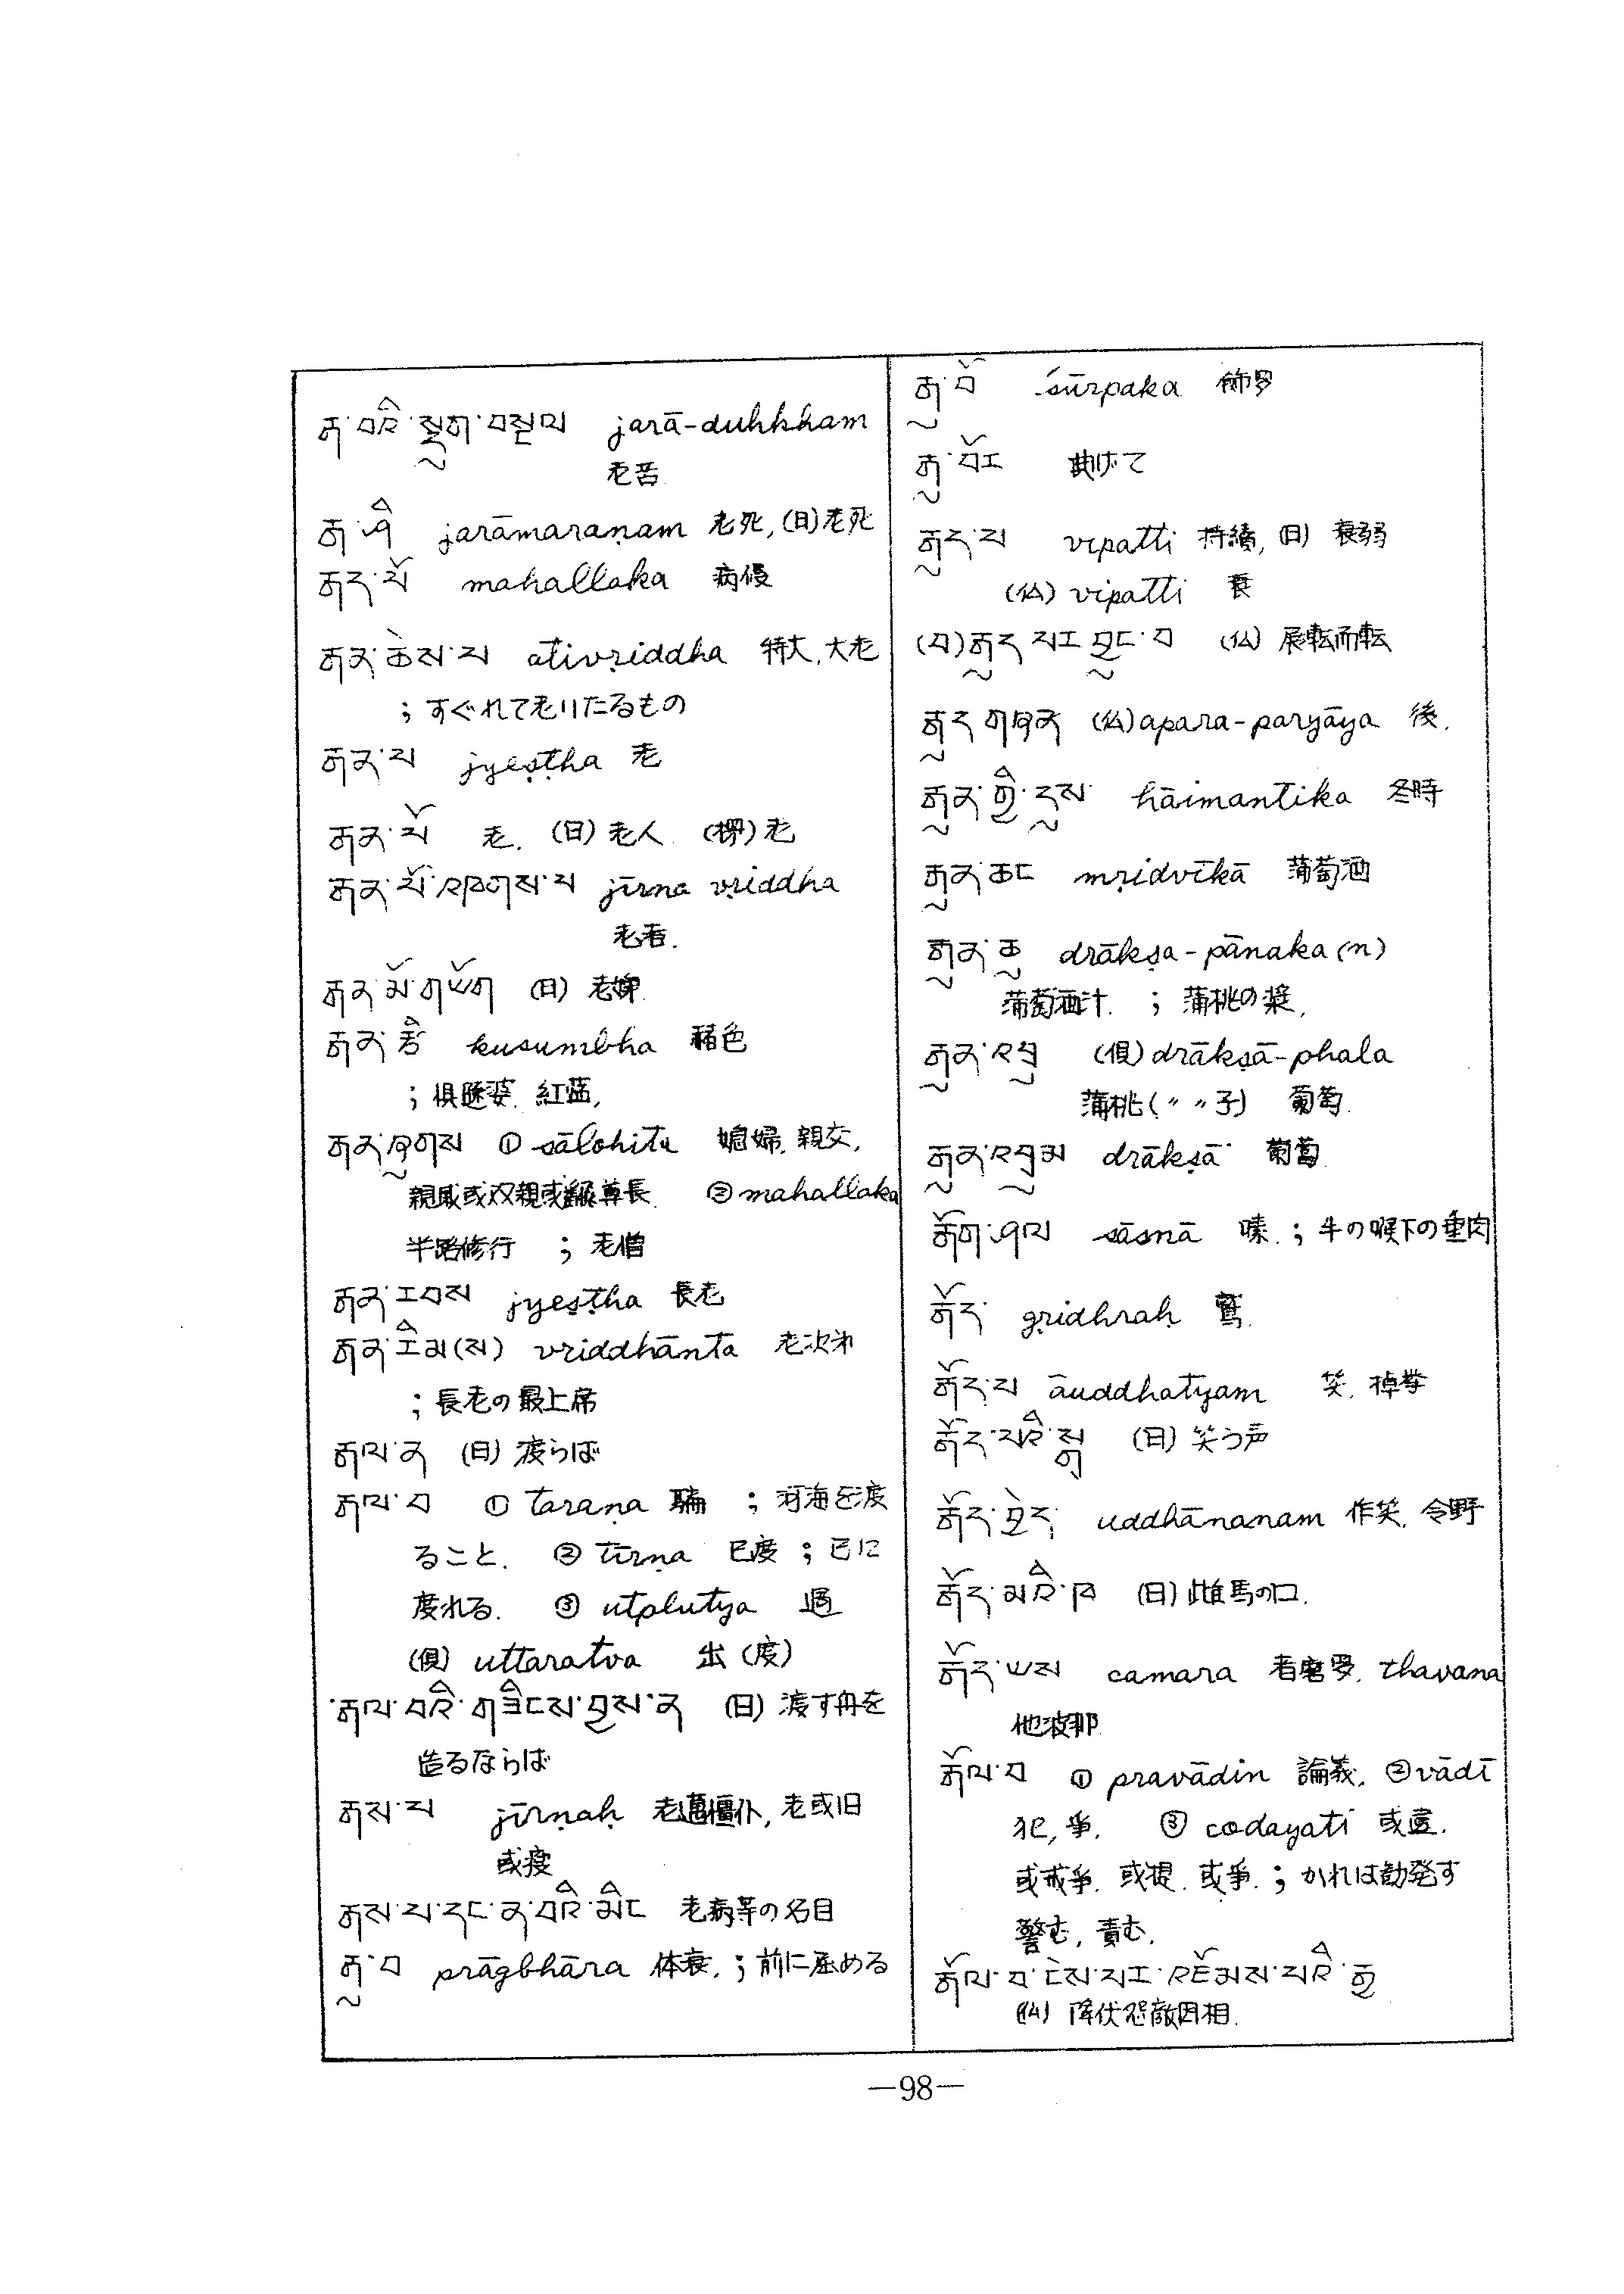 རྒ་བའི་སྡུག་བསྔལ jarā-duhkham
老苦
རྒ་ཤི jarāmaraṇam 老死, (日)老死
རྒད་པོ mahallaka 病僂
རྒན་ཆེས་པ ativṛiddha 特大, 大老
; すぐれて老いたるもの
རྒན་པ jyeṣṭha 老
རྒན་པོ 老. (日) 老人. (榜) 老
རྒན་པོ་འཁོགས་པ jīrna vṛiddha
老者.
རྒན་མོ་གཡོག (日) 老婢
རྒན་རྩི kusumbha 赭色
; 倶遜婆. 紅藍,
རྒན་ཞུགས ① sālohita 媳婦, 親交,
親戚或双親或 尊長. ② mahallaka
半路修行 ; 老僧
རྒན་རབས jyeṣṭha 長老
རྒན་རིམ(ས) vriddhānta 老次第
; 長老の最上席
རྒལ་ན (日) 渡らば
རྒལ་བ ① taraṇa 騙 ; 河海を度
ること. ② tīrṇa 已度 ; 已に
度れる. ③ utplutya 過
(倶) uttaratva 出 (度)
རྒལ་བའི་གཟིངས་བྱས་ན (日) 渡す舟を
造るならば
རྒས་པ jīrṇaḥ 老邁僵仆, 老或旧
或痩
རྒས་པ་དང་ན་བའི་མིང 老病等の名目
རྒུ་བ prāgbhāra 体衰. ; 前に屈める
རྒུ་བོ śūrpaka 飾罗
རྒུ་བོར 曲げて
རྒུད་པ vipatti 持續, (日) 衰弱
(仏) vipatti 衰
(བ)རྒུད་པར་བྱུང་བ (仏) 展転而転
རྒུད་གཞན (仏) apara-paryāya 後.
རྒུན་གྱི་དུས haimantika 冬時
རྒུན་ཆང mṛidvīkā 蒲萄酒
རྒུན་ཆུ drākṣa-pānaka (n)
蒲萄酒汁. ; 蒲桃の漿,
རྒུན་འབྲུ (倶) drākṣā-phala
蒲桃(〃〃子) 葡萄.
རྒུན་འབྲུམ drākṣā 葡萄
རྒོག་ཤལ sāsnā 嗉. ; 牛の喉下の垂肉
རྒོད gṛidhraḥ 鷲.
རྒོད་པ āuddhatyam 笑. 掉挙
རྒོད་པའི་སྒྲ (日) 笑う声
རྒོད་བྱེད uddhānanam 作笑. 令野
རྒོད་མའི་ཁ (日) 雌馬の口.
རྒོད་ཡས camara 者磨罗. thavana
他波那
རྒོལ་བ ① pravādin 論義, ② vādī
犯, 争. ③ codayati 或遣.
或戒争. 或提. 或争. ; かれは勧発す
警む, 責む,
རྒོལ་བ་ངེས་པར་འཇོམས་པའི་རྒྱུ
(仏) 降伏怨敵因相.
—98—